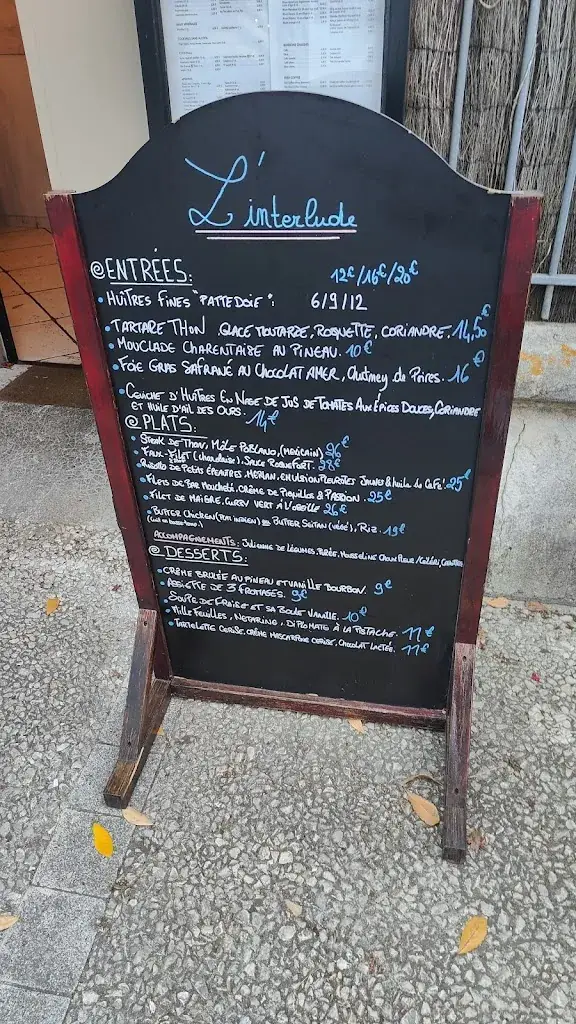 L'interlude
@ ENTRÉES: 12€/16€/20€
• HUÎTRES FINES "PATTE DOIE": 6/9/12
• TARTARE THON, GLACE MOUTARDE, ROQUETTE, CORIANDRE. 14,50€
• MOUCLADE CHARENTAISE AU PINEAU. 10€
• FOIE GRAS SAFRANÉ AU CHOCOLAT AMER, Chutney de Poires. 16€
D'HUÎTRES EN NAGE DE JUS DE TOMATES AUX ÉPICES DOUCES, CORIANDRE
ET HUILE D'AIL DES OURS. 14€
@ PLATS:
• STEAK DE THON, MÔLE POBLANO, (MEXICAIN) 26€
• FAUX-FILET (charolaise), SAUCE ROQUEFORT. 28€
• RISOTTO DE PETITS ÉPEAUTRES, MERLAN, EMULSION PLEUROTES JAUNES & huile de CAFÉ! 25€
• FILETS DE BAR MOUCHETÉ, CRÈME DE PIQUILLOS & PASSION. 25€
• FILET DE MAIGRE, CURRY VERT À L'OSEILLE 26€
• BUTTER CHICKEN (PLAT INDIEN) ou BUTTER SEITAN (VÉGÉ), RIZ. 19€
ACCOMPAGNEMENTS: JULIENNE DE LÉGUMES, PURÉE, MOUSSELINE CHOUX FLEUR/CÉLERI,
@ DESSERTS:
• CRÈME BRULÉE AU PINEAU ET VANILLE BOURBON. 9€
• ASSIETTE DE 3 FROMAGES. 9€
• SOUPE DE FRAISE ET SA BOULE VANILLE. 10€
• MILLE FEUILLES, NECTARINE, DIPLOMATE À LA PISTACHE. 11€
• TARTELETTE CERISE, CRÈME MASCARPONE CERISE, CHOCOLAT LACTÉE. 11€